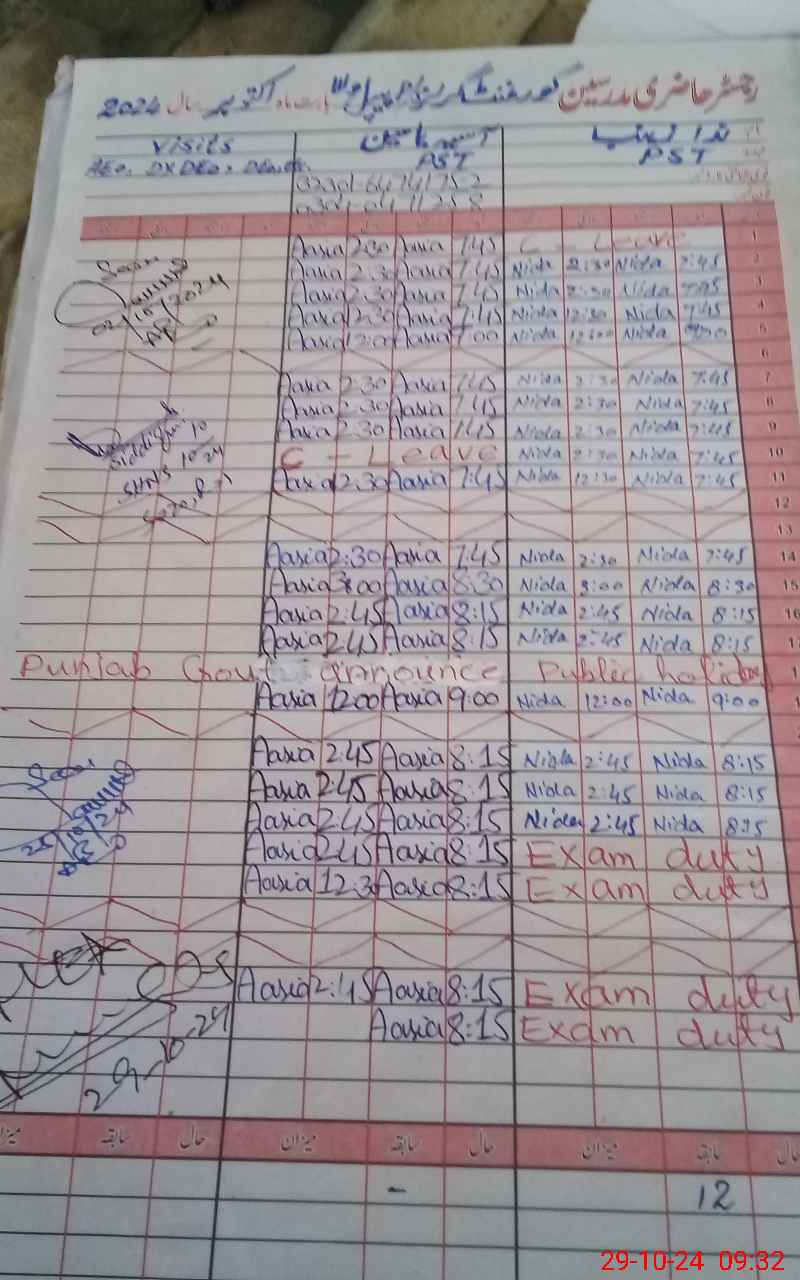 رجسٹر حاضری مدرسین گورنمنٹ بابت ماہ اکتوبر سال 2024
Visits آسیہ یاسین ندا زینب
AEO, DY DEO, PST PST
1 Aasia 2:30 Aasia 7:45 C - Leave
2 Aasia 2:30 Aasia 7:45 Nida 2:30 Nida 7:45
3 Aasia 2:30 Aasia 7:45 Nida 2:30 Nida 7:45
4 Aasia 2:30 Aasia 7:45 Nida 12:30 Nida 7:45
02/10/2024
5 Aasia 12:00 Aasia 9:00 Nida 12:00 Nida 9:00
6
7 Aasia 2:30 Aasia 7:45 Nida 2:30 Nida 7:45
8 Aasia 2:30 Aasia 7:45 Nida 2:30 Nida 7:45
9 Aasia 2:30 Aasia 7:45 Nida 2:30 Nida 7:45
10 C - Leave Nida 2:30 Nida 7:45
11 Aasia 2:30 Aasia 7:45 Nida 12:30 Nida 7:45
12
13
14 Aasia 2:30 Aasia 7:45 Nida 2:30 Nida 7:45
15 Aasia 3:00 Aasia 8:30 Nida 3:00 Nida 8:30
16 Aasia 2:45 Aasia 8:15 Nida 2:45 Nida 8:15
Aasia 2:45 Aasia 8:15 Nida 2:45 Nida 8:15
Punjab Govt announce Public holiday
Aasia 12:00 Aasia 9:00 Nida 12:00 Nida 9:00
Aasia 2:45 Aasia 8:15 Nida 2:45 Nida 8:15
Aasia 2:45 Aasia 8:15 Nida 2:45 Nida 8:15
Aasia 2:45 Aasia 8:15 Nida 2:45 Nida 8:15
Aasia 2:45 Aasia 8:15 Exam duty
Aasia 12:3 Aasia 8:15 Exam duty
Aasia 2:45 Aasia 8:15 Exam duty
Aasia 8:15 Exam duty
29-10-24
حال سابقہ میزان حال سابقہ میزان حال سابقہ میزان
12 -
29-10-24 09:32